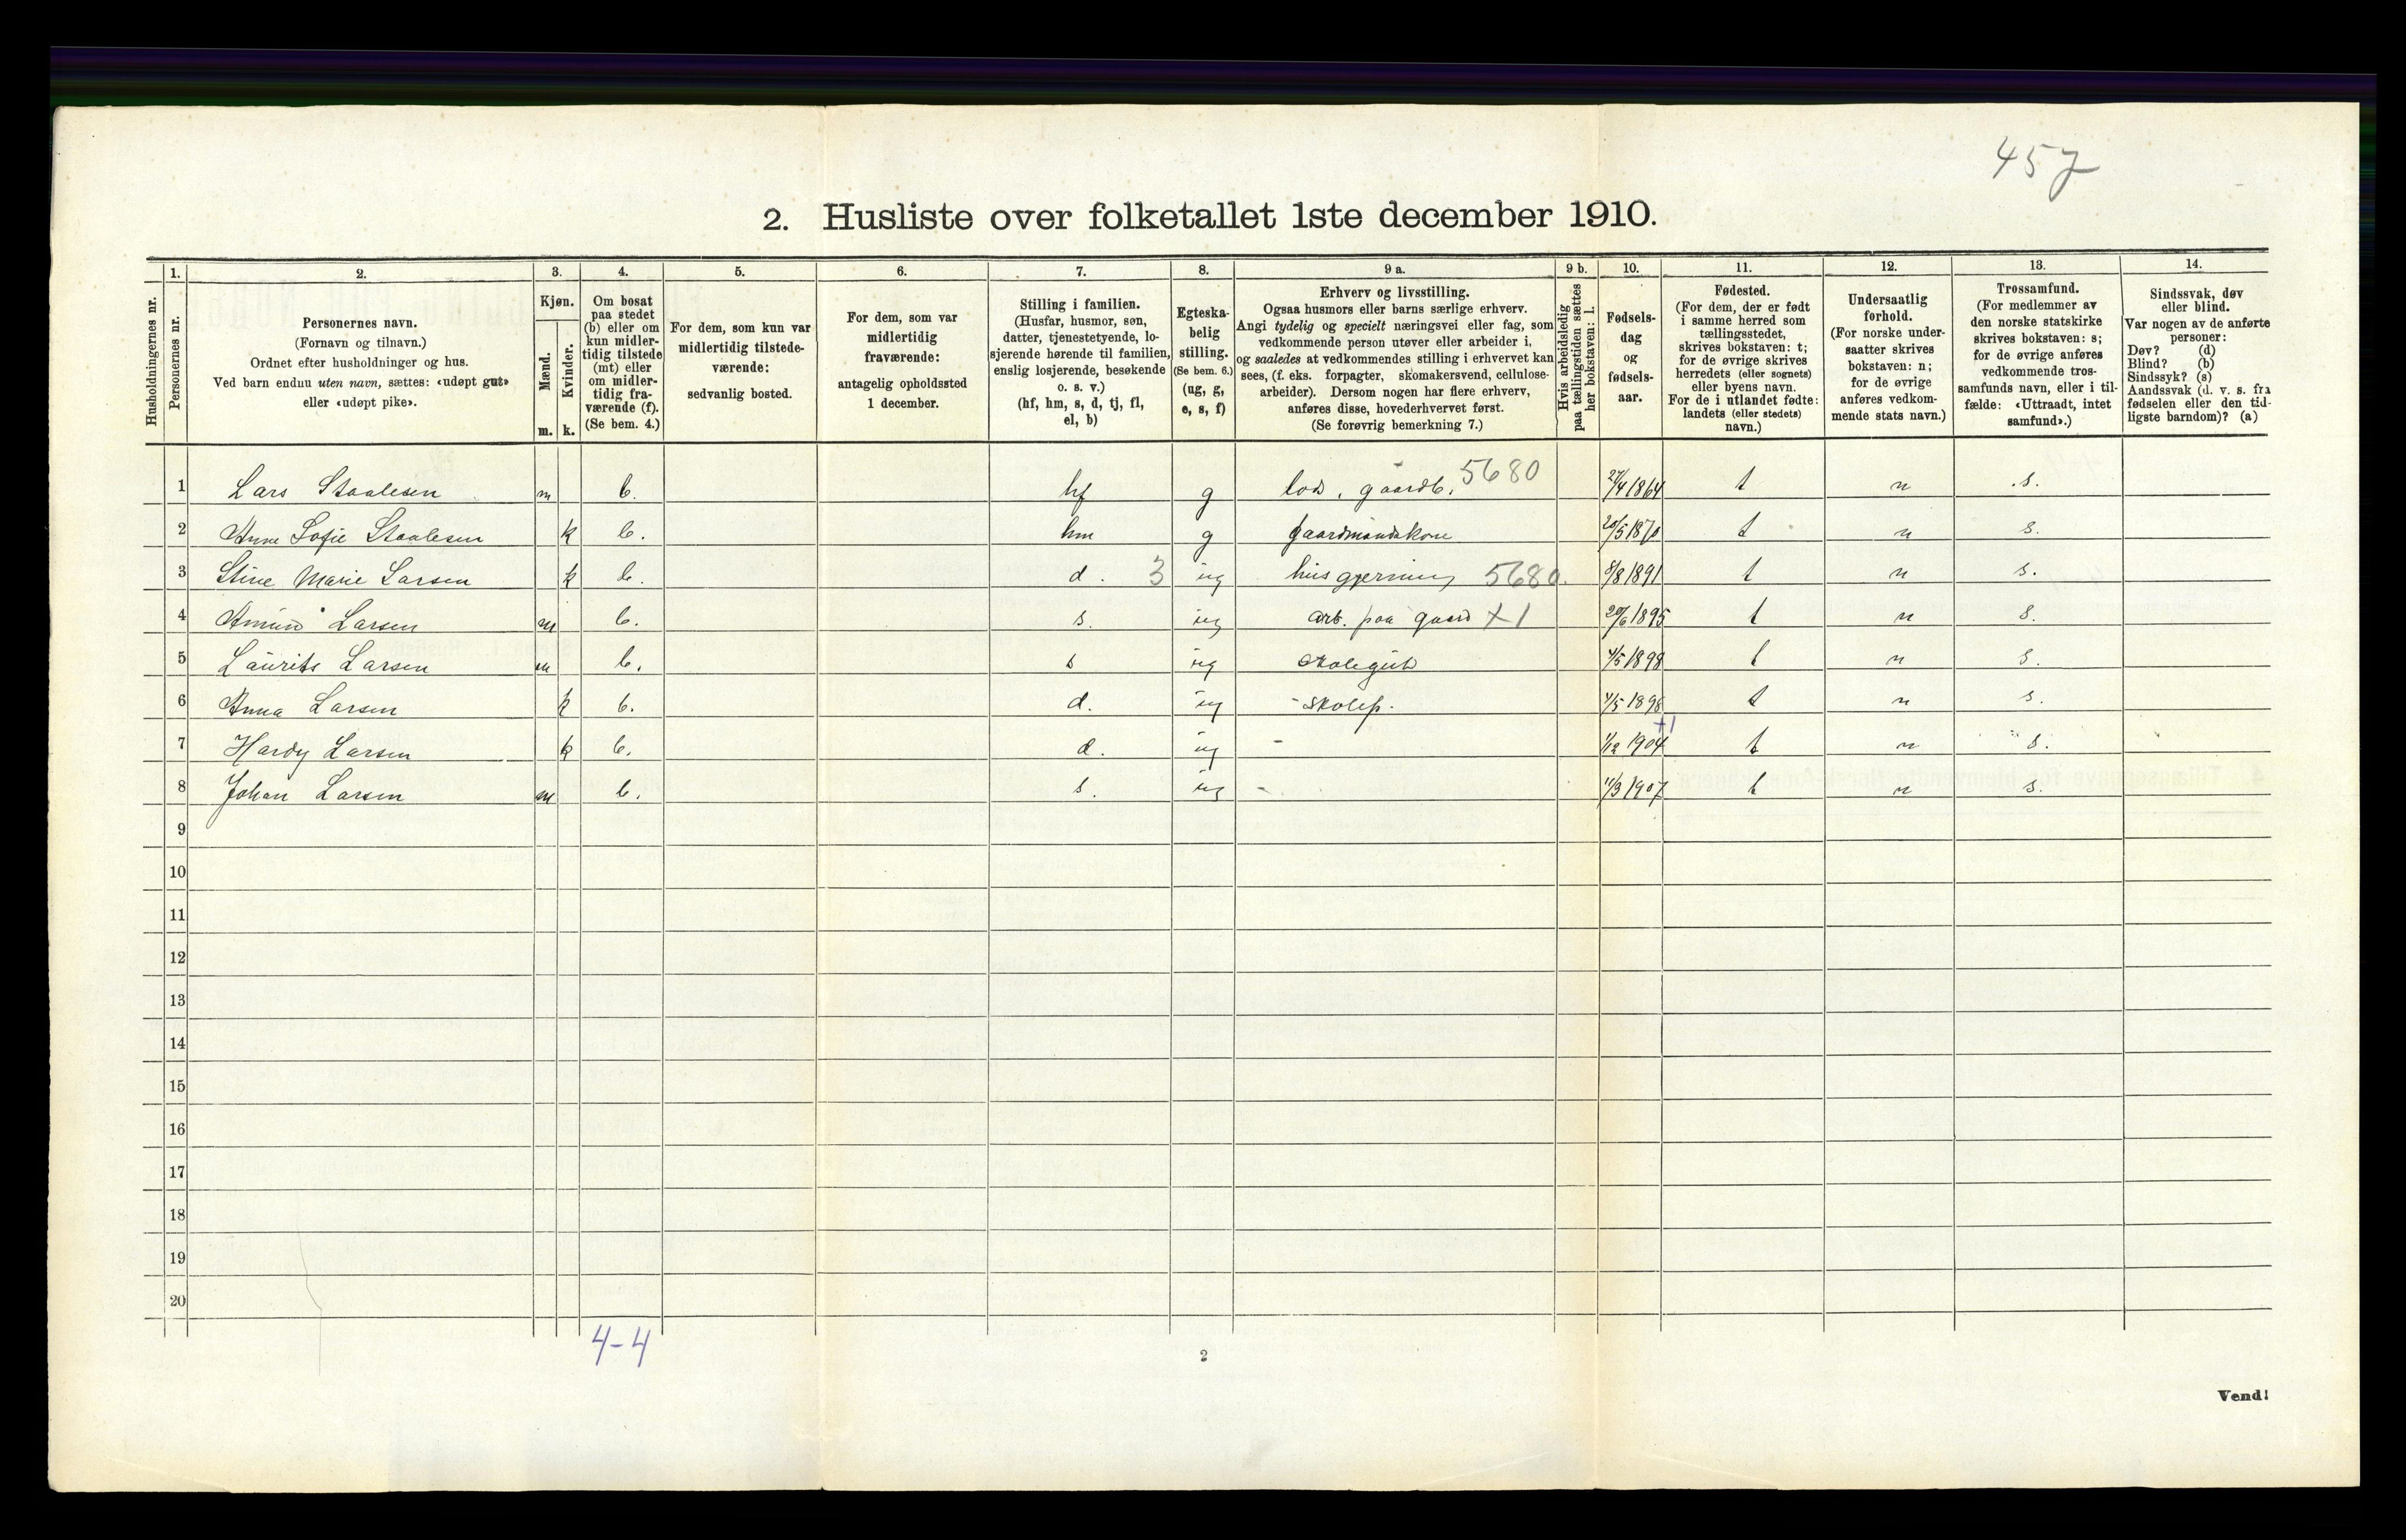 457
2. Husliste over folketallet 1ste december 1910.
Husholdningernes nr.
1.
Personernes nr.
2.
Personernes navn.
(Fornavn og tilnavn.)
Ordnet efter husholdninger og hus.
Ved barn endnu uten navn, sættes: «udøpt gut»
eller «udøpt pike».
3.
Kjøn.
Mænd.
Kvinder.
m. k.
4.
Om bosat
paa stedet
(b) eller om
kun midler-
tidig tilstede
(mt) eller
om midler-
tidig fra-
værende (f).
(Se bem. 4.)
5.
For dem, som kun var
midlertidig tilstede-
værende:
sedvanlig bosted.
6.
For dem, som var
midlertidig
fraværende:
antagelig opholdssted
1 december.
7.
Stilling i familien.
(Husfar, husmor, søn,
datter, tjenestetyende, lo-
sjerende hørende til familien,
enslig losjerende, besøkende
o. s. v.)
(hf, hm, s, d, tj, fl,
el, b)
8.
Egteska-
belig
stilling.
(Se bem. 6.)
(ug, g,
e, s, f)
9 a.
Erhverv og livsstilling.
Ogsaa husmors eller barns særlige erhverv.
Angi tydelig og specielt næringsvei eller fag, som
vedkommende person utøver eller arbeider i,
og saaledes at vedkommendes stilling i erhvervet kan
sees, (f. eks. forpagter, skomakersvend, cellulose-
arbeider). Dersom nogen har flere erhverv,
anføres disse, hovederhvervet først.
(Se forøvrig bemerkning 7.)
9 b.
Hvis arbeidsledig
paa tællingstiden sættes
her bokstaven: l.
10.
Fødsels-
dag
og
fødsels-
aar.
11.
Fødested.
(For dem, der er født
i samme herred som
tællingsstedet,
skrives bokstaven: t;
for de øvrige skrives
herredets (eller sognets)
eller byens navn.
For de i utlandet fødte:
landets (eller stedets)
navn.)
12.
Undersaatlig
forhold.
(For norske under-
saatter skrives
bokstaven: n;
for de øvrige
anføres vedkom-
mende stats navn.)
13.
Trossamfund.
(For medlemmer av
den norske statskirke
skrives bokstaven: s;
for de øvrige anføres
vedkommende tros-
samfunds navn, eller i til-
fælde: «Uttraadt, intet
samfund».)
14.
Sindssvak, døv
eller blind.
Var nogen av de anførte
personer:
Døv? (d)
Blind? (b)
Sindssyk? (s)
Aandssvak (d. v. s. fra
fødselen eller den tid-
ligste barndom)? (a)
1 Lars Staalesen m b. hf g lods, gaardb. 5680 27/4 1864 t n s.
2 Anne Sofie Staalesen k b. hm g gaardmandskone 20/5 1870 t n s.
3 Stine Marie Larsen k b. d. 3 ug husgjerning 5680. 8/8 1891 t n s.
4 Larsen m b. s. ug arb. paa gaard x1 20/6 1895 t n s.
5 Laurits Larsen m b. s ug skolegut 4/5 1898 t n s.
6 Anna Larsen k b. d. ug - skolep. 4/5 1898 t n s.
7 Hardy Larsen k b. d. ug - 1/12 1904 +1 t n s.
8 Johan Larsen m b. s. ug - 11/3 1907 t n s.
9
10
11
12
13
14
15
16
17
18
19
20
4-4
2
Vend!